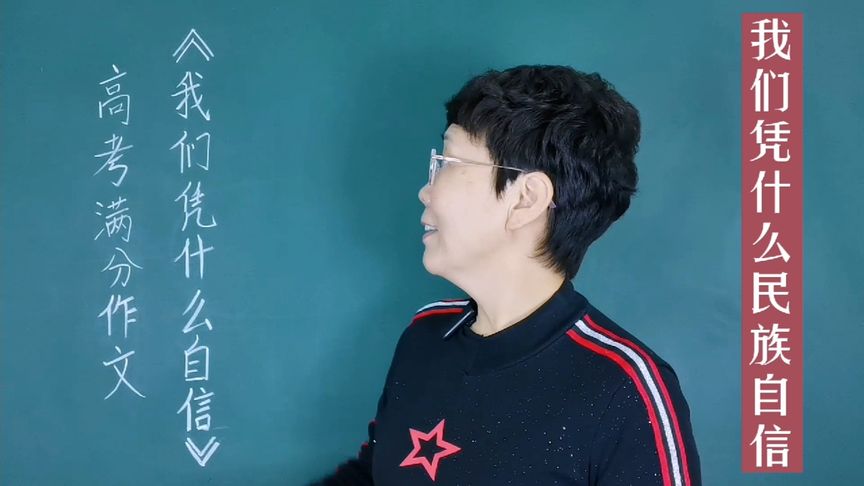 我们凭什么民族自信
《我们凭什么自信》
高考满分作文